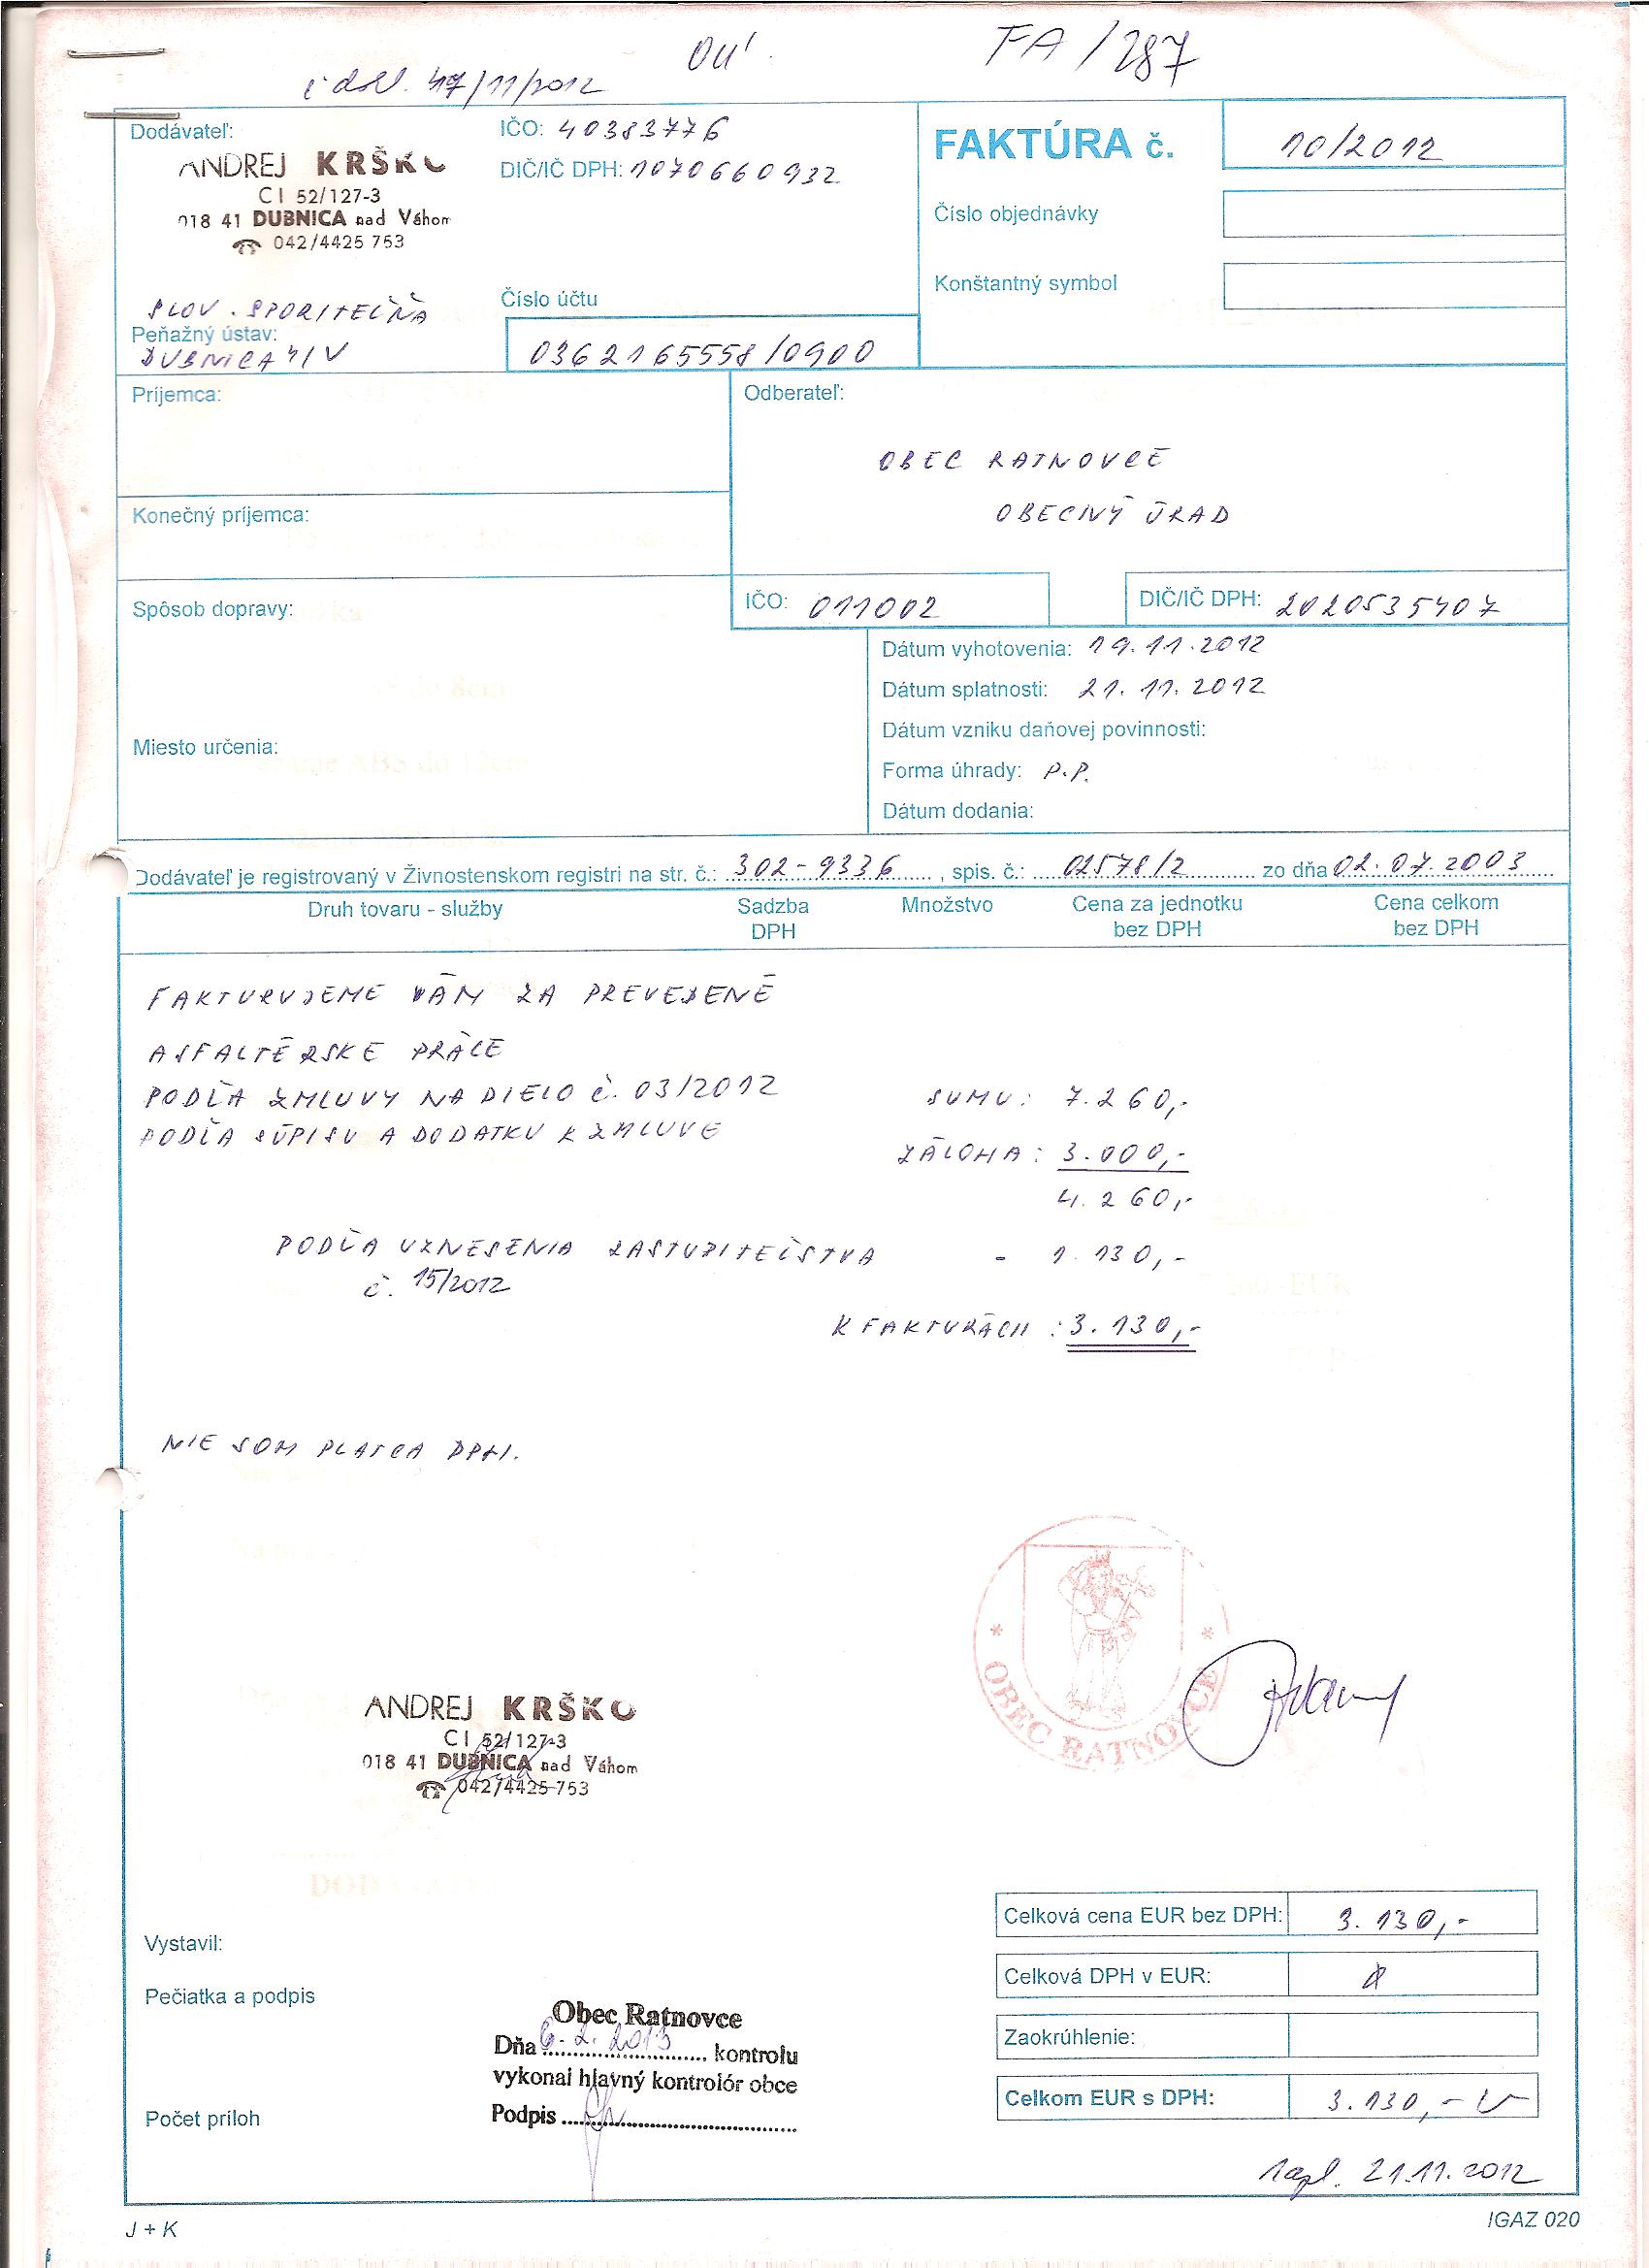 OÚ
FA/287
č. dod. 47/11/2012
Dodávateľ:
ANDREJ KRŠKO
CI 52/127-3
018 41 DUBNICA nad Váhom
☎ 042/4425 753
IČO: 40383776
DIČ/IČ DPH: 1070660932
FAKTÚRA č. 10/2012
Číslo objednávky
Konštantný symbol
SLOV. SPORITEĽŇA
Peňažný ústav:
DUBNICA N/V
Číslo účtu
0362165558/0900
Príjemca:
Odberateľ:
OBEC RATNOVCE
OBECNÝ ÚRAD
Konečný príjemca:
IČO: 011002
DIČ/IČ DPH: 2020535407
Spôsob dopravy:
Miesto určenia:
Dátum vyhotovenia: 19.11.2012
Dátum splatnosti: 21.11.2012
Dátum vzniku daňovej povinnosti:
Forma úhrady: P.P.
Dátum dodania:
Dodávateľ je registrovaný v Živnostenskom registri na str. č.: 302-9336, spis. č.: 02578/2 zo dňa 02.07.2003
Druh tovaru - služby Sadzba DPH Množstvo Cena za jednotku bez DPH Cena celkom bez DPH
FAKTURUJEME VÁM ZA PREVEDENÉ
ASFALTÉRSKE PRÁCE
PODĽA ZMLUVY NA DIELO č. 03/2012 SUMU: 7.260,-
PODĽA SÚPISU A DODATKU K ZMLUVE
ZÁLOHA: 3.000,-
4.260,-
PODĽA UZNESENIA ZASTUPITEĽSTVA - 1.130,-
č. 15/2012
K FAKTURÁCII: 3.130,-
NIE SOM PLATCA DPH.
OBEC RATNOVCE
ANDREJ KRŠKO
CI 52/127-3
018 41 DUBNICA nad Váhom
☎ 042/4425 753
Celková cena EUR bez DPH: 3.130,-
Vystavil:
Celková DPH v EUR:
Pečiatka a podpis
Zaokrúhlenie:
Obec Ratnovce
Dňa 6.2.2013 kontrolu
vykonal hlavný kontrolór obce
Podpis
Celkom EUR s DPH: 3.130,-
Počet príloh
zapl. 21.11.2012
J + K
IGAZ 020